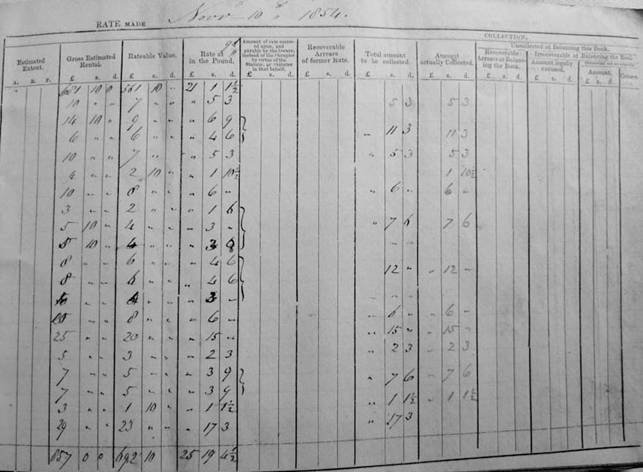 RATE MADE Novr 10th 1854.
COLLECTION.
Uncollected at Balancing this Book.
Estimated Extent. Gross Estimated Rental. Rateable Value. Rate at 9d in the Pound. Recoverable Arrears of former Rate. Total amount to be collected. Amount actually Collected. Recoverable Arrears at Balancing the Book. Amount legally excused. Amount.
A. R. P. £ s. d. £ s. d. £ s. d. £ s. d. £ s. d. £ s. d. £ s. d.
681 10 0 561 10 " 21 1 1½
10 " " 7 " " " 5 3 5 3 5 3
14 10 " 9 " " " 6 9
6 " " 6 " " " 4 6 " 11 3 11 3
10 " " 7 " " " 5 3 " 5 3 5 3
4 " " 2 10 " " 1 10½ 1 10½
10 " " 8 " " " 6 " " 6 " 6 "
3 " " 2 " " " 1 6
5 10 " 4 " " " 3 " " 7 6 7 6
8 " " 6 " " " 4 6
8 " " 6 " " " 4 6 12 " " 12 "
10 " " 8 " " " 6 " " 6 " " 6 "
25 " " 20 " " " 15 " " 15 " " 15 "
5 " " 3 " " " 2 3 " 2 3 " 2 3
7 " " 5 " " " 3 9
7 " " 5 " " " 3 9 " 7 6 " 7 6
3 " " 1 10 " " 1 1½ " 1 1½ " 1 1½
29 " " 23 " " " 17 3 " 17 3
857 0 0 692 10 25 19 4½